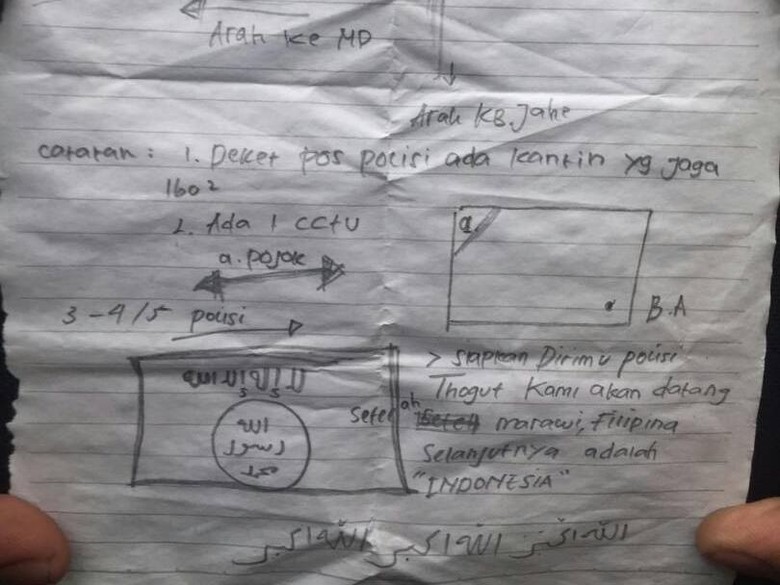 Arah ke MD
Arah KB. Jahe
catatan : 1. Deket pos polisi ada kantin yg jaga
Ibo²
2. Ada 1 CCTV
a. pojok
a.
3-4/5 polisi
B.A
> Siapkan Dirimu polisi
Thogut Kami akan datang
Setelah marawi, Filipina
Selanjutnya adalah
"INDONESIA"
الله
رسول
محمد
الله اكبر الله اكبر الله اكبر